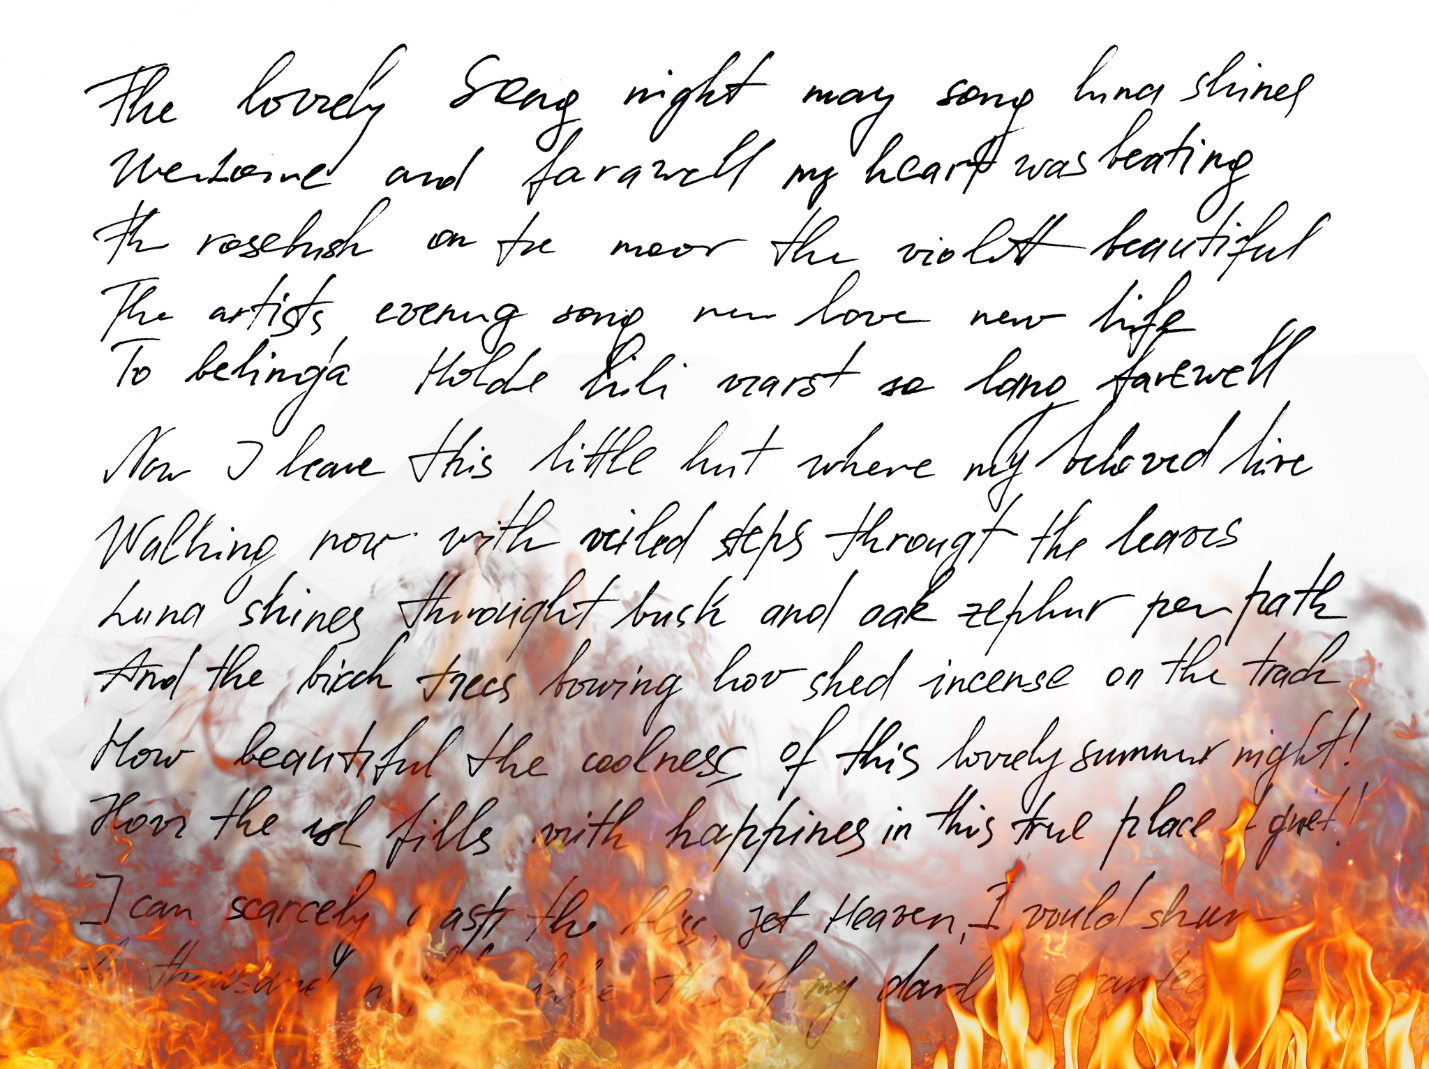 The lovely Song night may song luna shines
Welcome and farawell my heart was beating
Th rosebush on tre moor the violett beautiful
The artists evenug song new love new life
To belinga Holde Lili warst so lang farewell
Now I leave this little hut where my beloved live
Walking now with veiled steps througt the leavs
Luna shines throught busk and oak zephur per path
And the birch trees bowing hov shed incense on the track
How beautiful the coolness of this lovely summur night!
How the fills with happines in this true place quiet!
I can scarcely the bliss, jet Heaven, I would shun
thousand this if my